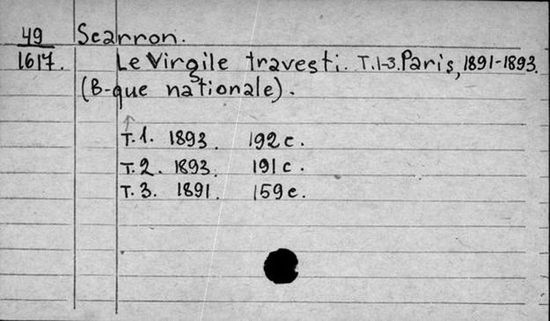 49 Scarron.
1617. Le Virgile travesti. T.1-3. Paris, 1891-1893.
(B-que nationale).
T.1. 1893. 192 c.
T.2. 1893. 191 c.
T.3. 1891. 159 c.